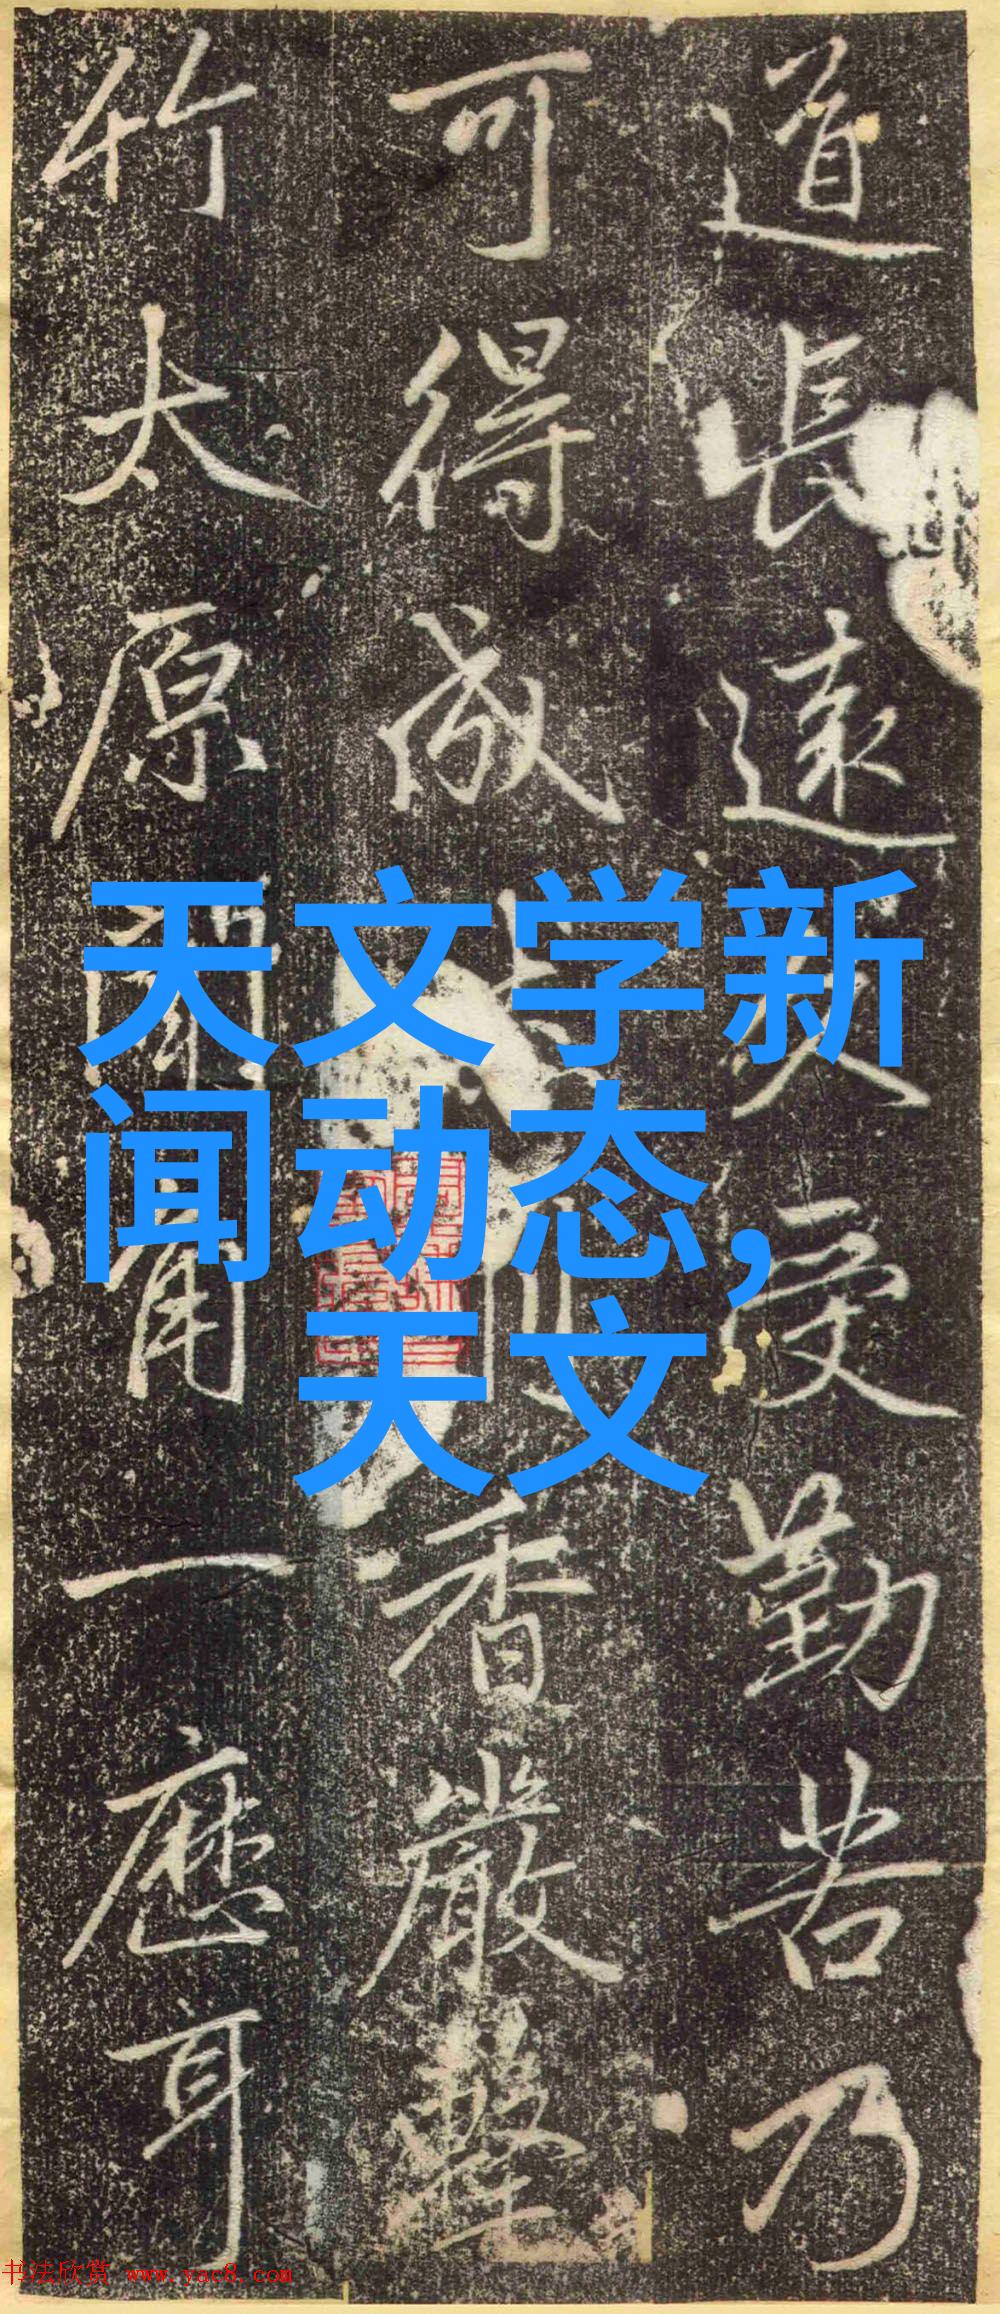 道長遠久受勤苦乃
可得成香嚴擊
竹太原聞角一應耳
天文学新
闻动态,
天文
书法欣赏 www.yac8.com